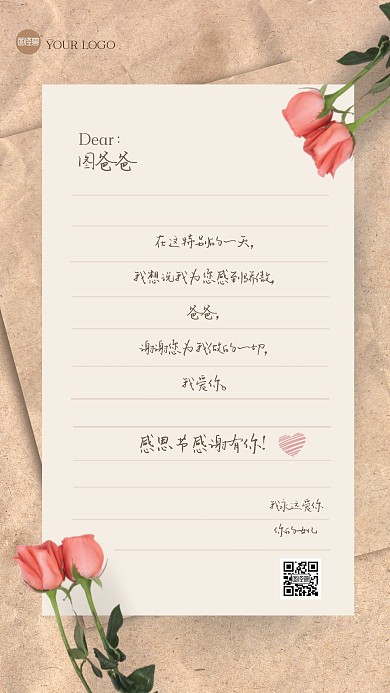 图怪兽 YOUR LOGO
Dear:
图爸爸
在这特别的一天,
我想说我为您感到骄傲,
爸爸,
谢谢您为我做的一切,
我爱你。
感恩节感谢有你!
我永远爱你
你的女儿
图怪兽